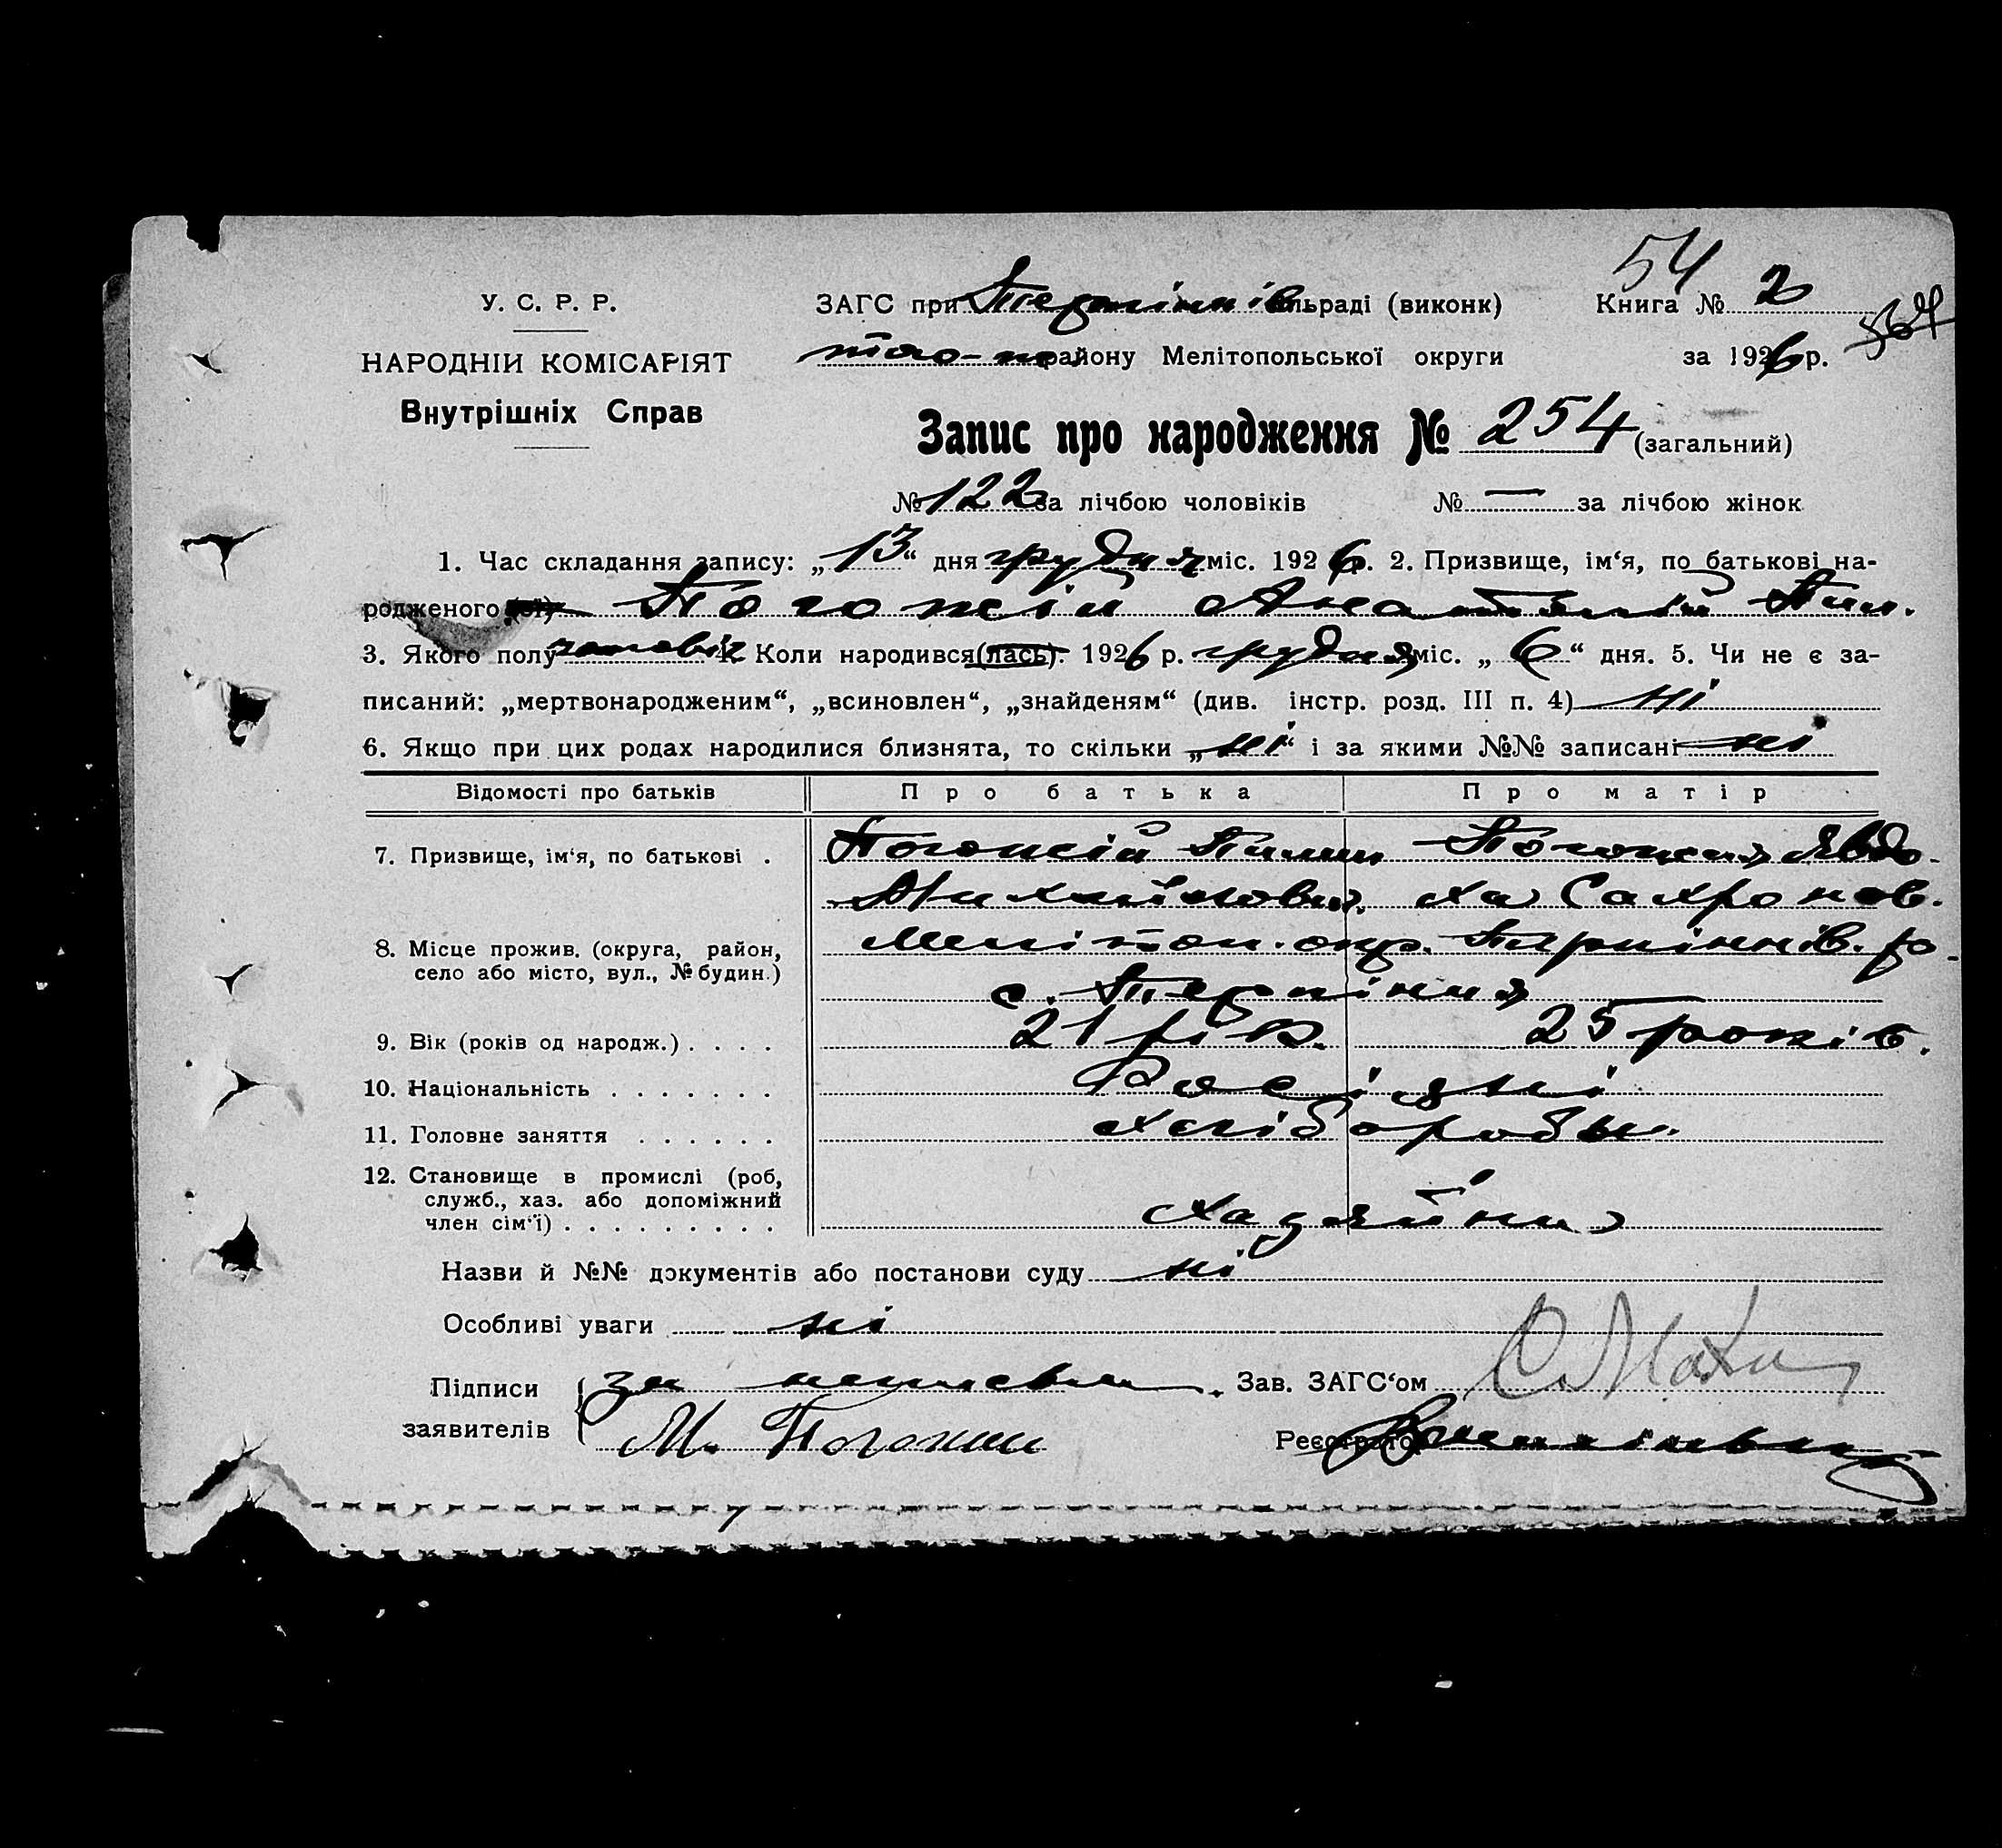 54
У. С. Р. Р.
ЗАГС при Терпіннів сільраді (виконк)
Книга № 2
НАРОДНІЙ КОМІСАРІЯТ
того-ж району Мелітопольської округи
за 1926 р.
Внутрішніх Справ
Запис про народження № 254 (загальний)
№ 122 за лічбою чоловіків № — за лічбою жінок
1. Час складання запису: „13“ дня грудня міс. 1926 р. 2. Призвище, ім‘я, по батькові на-
родженого Погожій Анатолій Пил.
3. Якого полу чоловік 4. Коли народився (лась). 1926 р. грудня міс. „6“ дня. 5. Чи не є за-
писаний: „мертвонародженим“, „всиновлен“, „знайденям“ (див. інстр. розд. III п. 4) ні
6. Якщо при цих родах народилися близнята, то скільки „ні“ і за якими №№ записані ні
Відомості про батьків Про батька Про матір
7. Призвище, ім‘я, по батькові . Погожій Пилип Погожая Явдо-
Михайлович. ха Сахронов.
8. Місце прожив. (округа, район, Мелітоп. окр. Терпіннів. ро
село або місто, вул., № будин.)
с. Терпіння
9. Вік (років од народж.) . . . . 21 рік. 25 років.
10. Національність . . . . . . . Росіяні
11. Головне заняття . . . . . . Хлібороби.
12. Становище в промислі (роб,
служб., хаз. або допоміжний
член сім‘ї) . . . . . . . . . Хазяїни
Назви й №№ документів або постанови суду ні
Особливі уваги ні
Підписи за неписьм.
Зав. ЗАГС‘ом
заявителів М. Погожий
Реєстратор